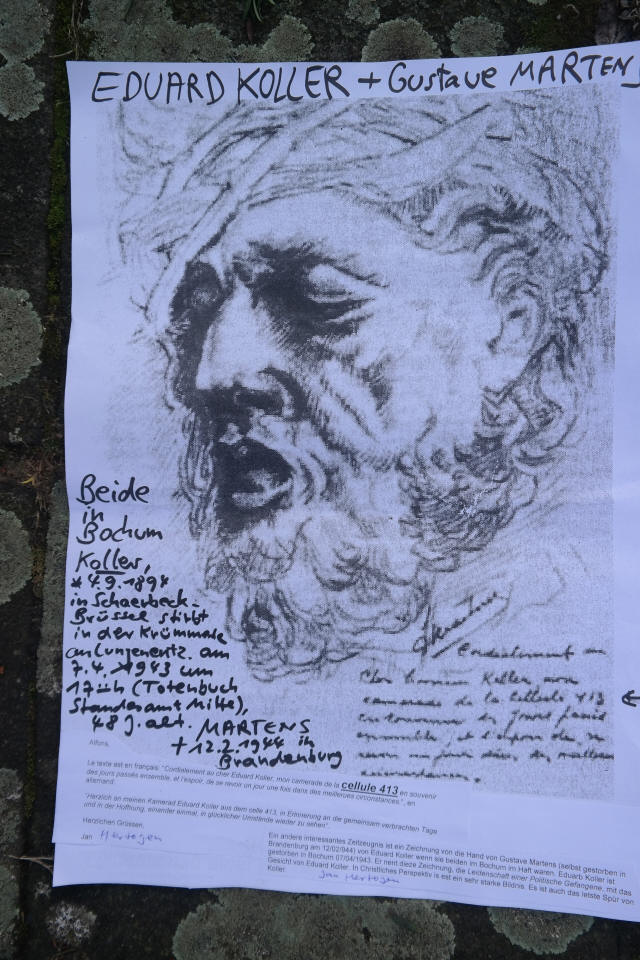 EDUARD KOLLER + Gustave MARTENS
Beide
in
Bochum
Koller,
* 4.9.1894
in Schaerbeck-
Brüssel stirbt
in der Krümmede
an Lungenentz. am
7.4. 1943 um
17 Uh (Totenbuch
Standesamt Mitte),
48 J. alt. MARTENS
+ 12.2.1944 in
Brandenburg
Cordialement au
Cher Eduard Koller, mon
camarade de la cellule 413
en souvenir des jours passés
ensemble, et l'espoir de se
revoir un jour dans des meilleures
circonstances.
Alfons,
Le texte est en français: "Cordialement au cher Eduard Koller, mon camarade de la cellule 413 en souvenir
des jours passés ensemble, et l'espoir, de se revoir un jour une fois dans des meilleures circonstances.", en
allemand.
"Herzlich an meinen Kamerad Eduard Koller aus dem celle 413, in Erinnerung an die gemeinsam verbrachten Tage
und in der Hoffnung, einander einmal, in glücklicher Umstände wieder zu sehen".
Herzlichen Grüssen,
Jan Hertogen
Ein andere interessantes Zeitzeugnis ist ein Zeichnung von die Hand von Gustave Martens (selbst gestorben in
Brandenburg am 12/02/944) von Eduard Koller wenn sie beiden im Bochum im Haft waren. Eduarb Koller ist
gestorben in Bochum 07/04/1943. Er nent dieze Zeichnung, die Leidenschaft einer Politische Gefangene, mit das
Gesicht von Eduard Koller. In Christliches Perspektiv is est ein sehr starke Bildnis. Es ist auch das letste Spür von
Koller.
Jan Hertogen